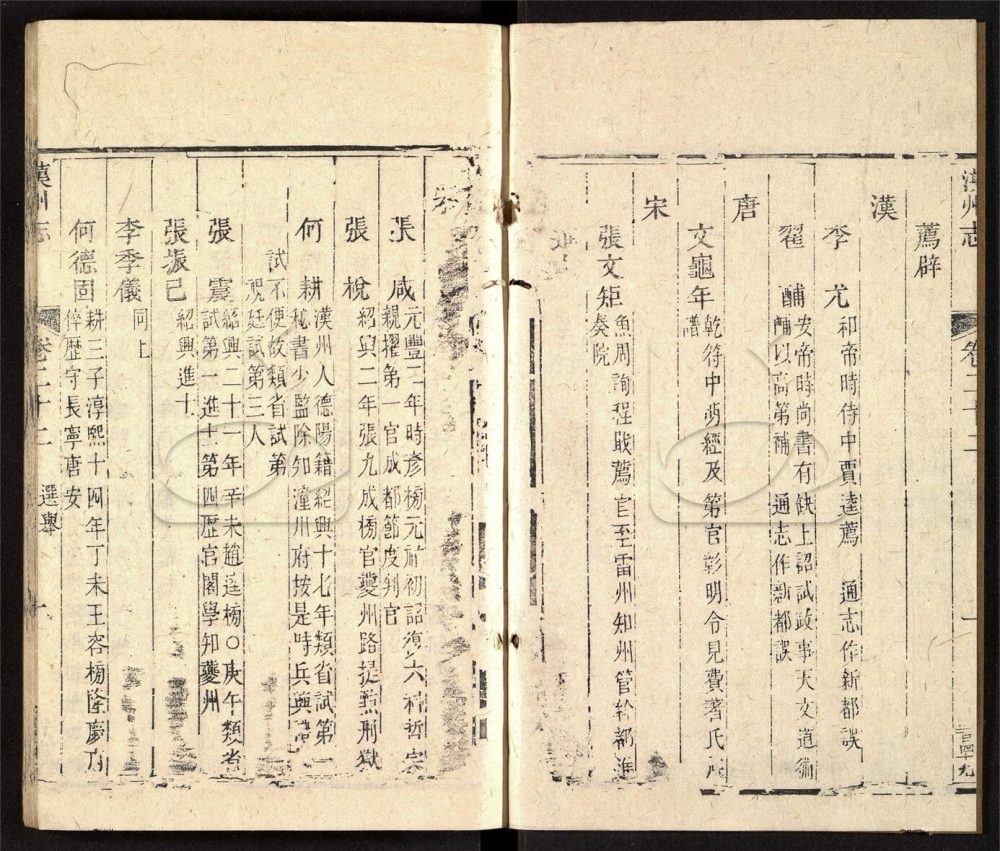 漢州志
卷二十二
一
百四十九
薦辟
漢
李尤 祁帝時侍中賈逵薦 通志作新都誤
翟酺 安帝時尚書有缺上詔試政事天文道術
酺以高第補 通志作新都誤
唐
文龜年 乾符中明經及第官彭明令見費著氏族
譜
宋
張文矩 魚周詢程戡薦官至雷州知州管幹都進
奏院
進
宋
張咸 元豐二年時彦榜元祐初詔復六科哲宗
親擢第一官成都節度判官
張梲 紹興二年張九成榜官夔州路提㸃刑獄
何耕 漢州人德陽籍紹興十七年類省試第一
秘書少監除知潼川府按是時兵興
試不便故類省試第
視廷試第三人
張震 紹興二十一年辛未趙逵榜〇庚午類省
試第一進士第四歷官閣學知夔州
張振己 紹興進士
李季儀 同上
何德固 耕三子淳熙十四年丁未王容榜隆慶
倅歴守長寧唐安
漢州志
卷二十二
選舉